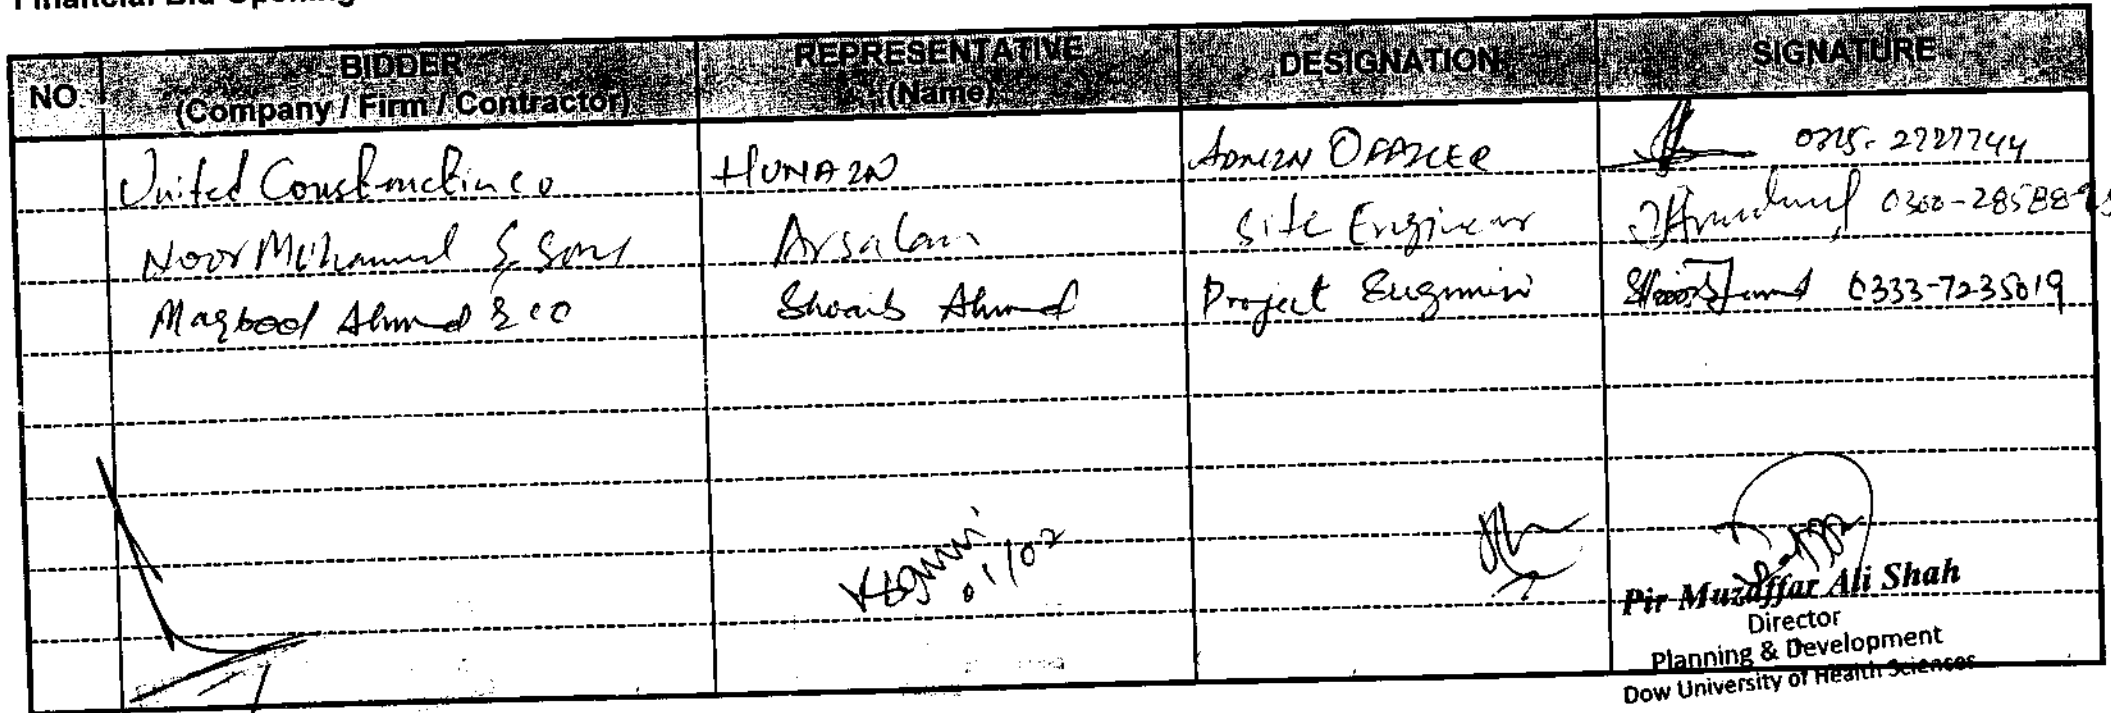 Financial Bid Opening
NO BIDDER (Company / Firm / Contractor) REPRESENTATIVE (Name) DESIGNATION SIGNATURE
United Construction co HUNAIN ADMIN OFFICER 2727744
Noor Mohammad & Sons Arsalan Site Engineer
Maqbool Ahmed & co Shoaib Ahmed Project Engineer 0333-7235019
01/02
Pir Muzaffar Ali Shah
Director
Planning & Development
Dow University of Health Sciences